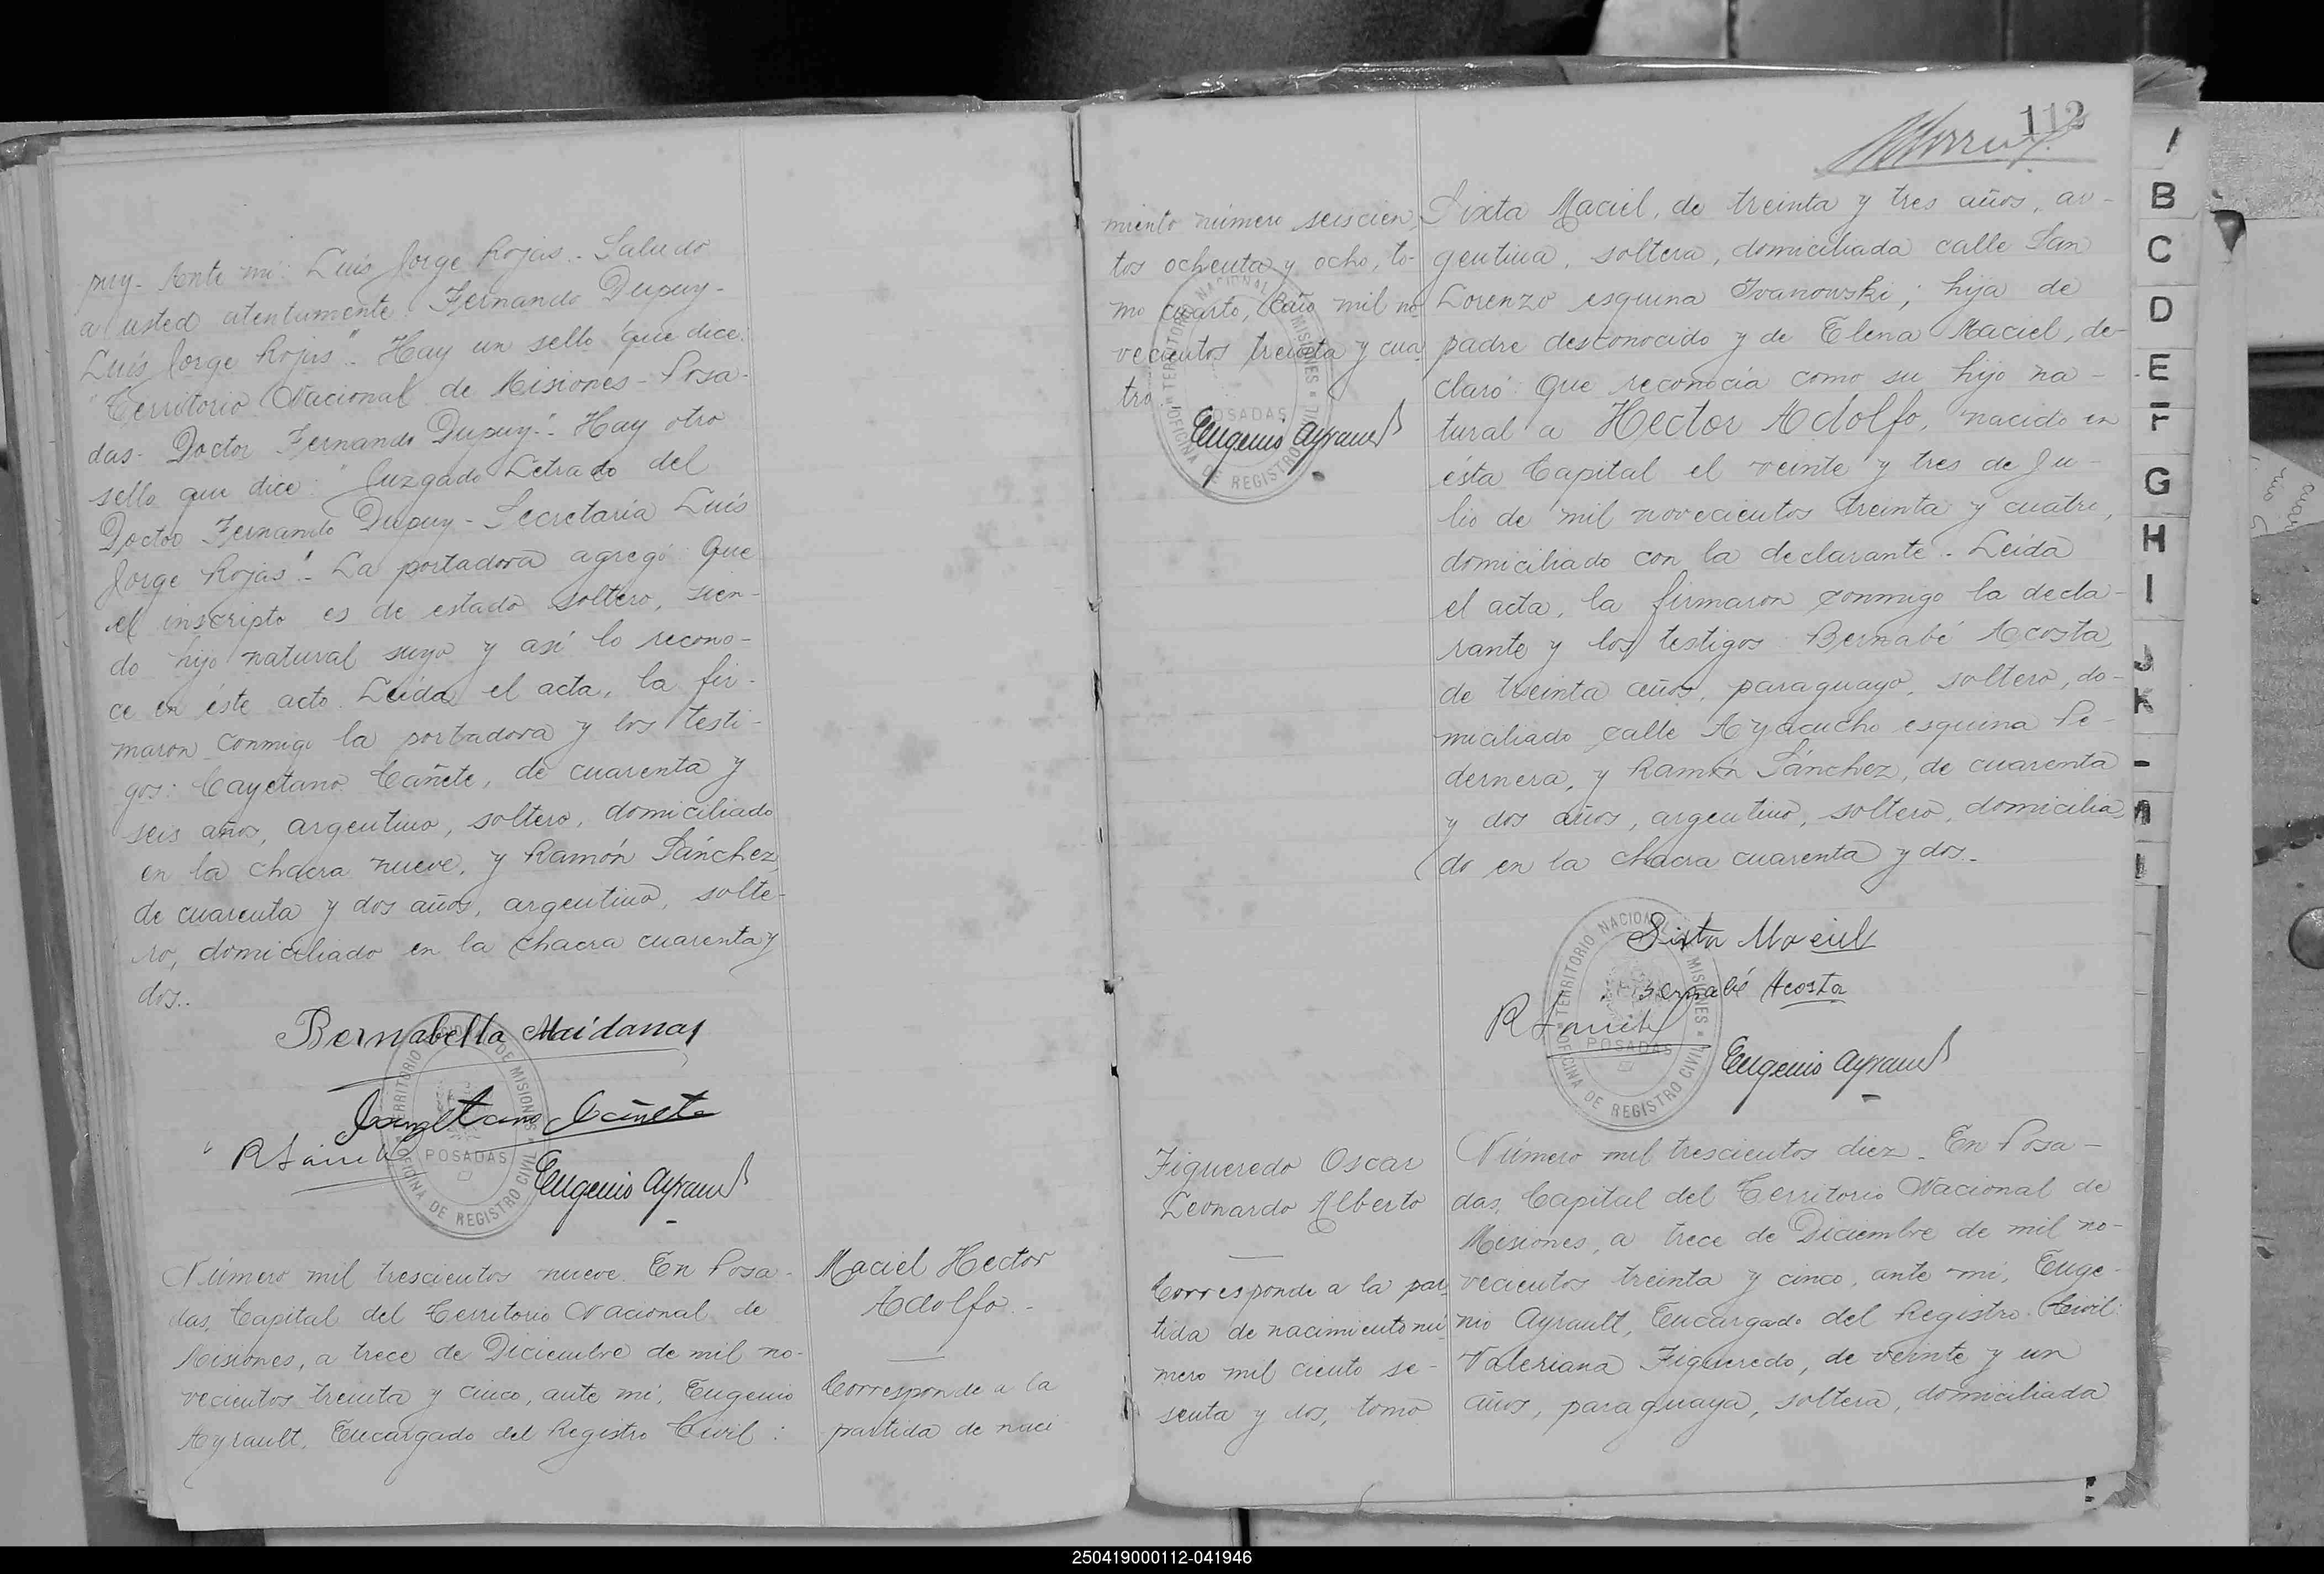 puy- Ante mi: Luis Jorge Rojas.- Saludo
a usted atentamente. Fernando Dupuy-
Luis Jorge Rojas".- Hay un sello que dice:
"Territorio Nacional de Misiones- Posa-
das- Doctor Fernando Dupuy".- Hay otro
sello que dice: "Juzgado Letrado del
Doctor Fernando Dupuy- Secretaria Luis
Jorge Rojas".- La portadora agregó: Que
el inscripto es de estado soltero, sien-
do hijo natural suyo y así lo recono-
ce en éste acto. Leída el acta, la fir-
maron conmigo la portadora y los testi-
gos: Cayetano Cañete, de cuarenta y
seis años, argentino, soltero, domiciliado
en la chacra nueve, y Ramón Sánchez,
de cuarenta y dos años, argentino, solte-
ro, domiciliado en la chacra cuarenta y
dos..
Bernabella Maidana
Cayetano Cañete
Eugenio Ayrault
TERRITORIO NACIONAL DE MISIONES
POSADAS
OFICINA DE REGISTRO CIVIL
Número mil trescientos nueve. En Posa-
das, Capital del Territorio Nacional de
Misiones, a trece de Diciembre de mil no-
vecientos treinta y cinco, ante mí, Eugenio
Ayrault, Encargado del Registro Civil:
Maciel Hector
Adolfo.-
Corresponde a la
partida de naci
112
miento número seiscien
tos ochenta y ocho, to-
mo cuarto, año mil no
vecientos treinta y cua
tro.
Eugenio Ayrault
TERRITORIO NACIONAL DE MISIONES
POSADAS
OFICINA DE REGISTRO CIVIL
Sixta Maciel, de treinta y tres años, ar-
gentina, soltera, domiciliada calle San
Lorenzo esquina Ivanowski; hija de
padre desconocido y de Elena Maciel, de-
claró: Que reconocía como su hijo na-
tural a Hector Adolfo, nacido en
ésta Capital el veinte y tres de Ju-
lio de mil novecientos treinta y cuatro,
domiciliado con la declarante.- Leída
el acta, la firmaron conmigo la decla-
rante y los testigos: Bernabé Acosta,
de treinta años, paraguayo, soltero, do-
miciliado calle Ayacucho esquina Pe-
dernera, y Ramón Sánchez, de cuarenta
y dos años, argentino, soltero, domicilia
do en la chacra cuarenta y dos.-
Sixta Maciel
Bernabé Acosta
Eugenio Ayrault
TERRITORIO NACIONAL DE MISIONES
POSADAS
OFICINA DE REGISTRO CIVIL
Figueredo Oscar
Leonardo Alberto
Corresponde a la par
tida de nacimiento nú
mero mil ciento se-
senta y dos, tomo
Número mil trescientos diez.- En Posa-
das, Capital del Territorio Nacional de
Misiones, a trece de Diciembre de mil no-
vecientos treinta y cinco, ante mí, Euge-
nio Ayrault, Encargado del Registro Civil:
Valeriana Figueredo, de veinte y un
años, paraguaya, soltera, domiciliada
B
C
D
E
F
G
H
I
J
K
250419000112-041946